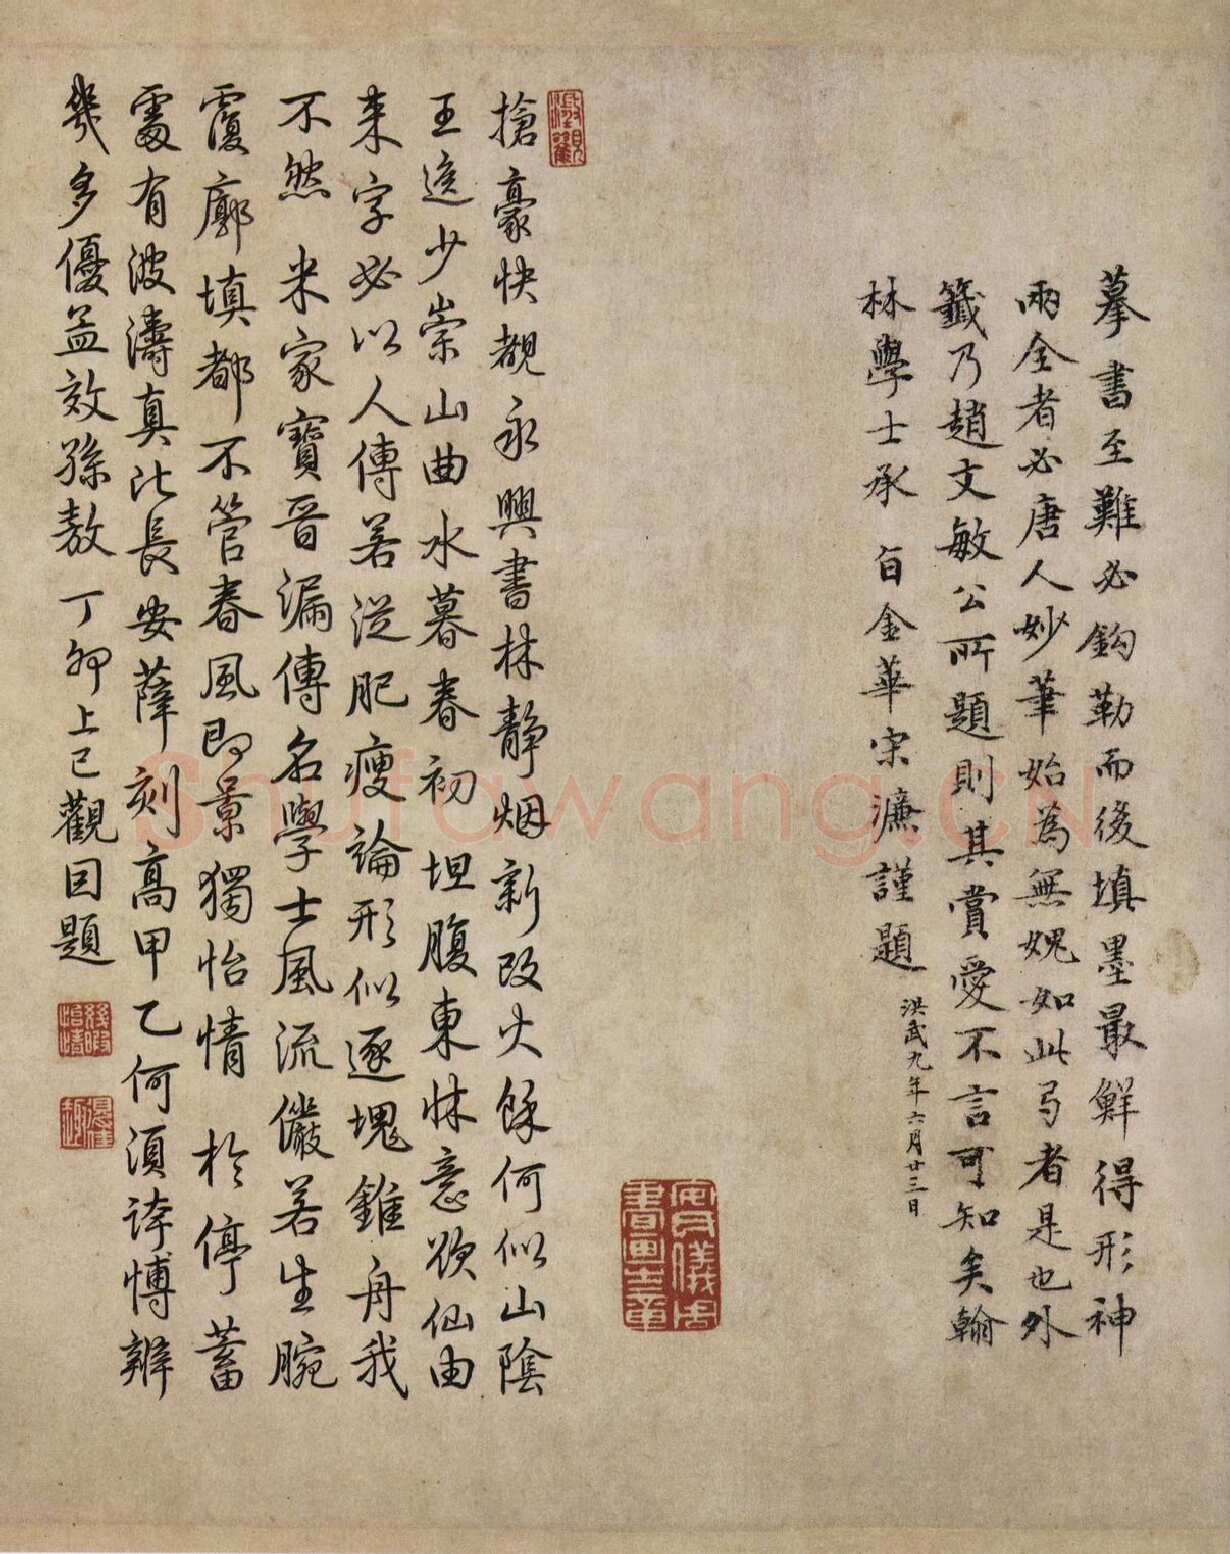 摹書至難必鈎勒而後填墨最鮮得形神
兩全者必唐人妙筆始為無媿如此弓者是也外
籤乃趙文敏公所題則其賞愛不言可知矣翰
林學士承旨金華宋濂謹題
洪武九年六月廿三日
搶豪快覩永興書林静烟新改火餘何似山陰
王逸少崇山曲水暮春初坦腹東牀意欲仙由
来字必以人傳若從肥瘦論形似逐塊錐舟我
不然米家寶晉漏傳名學士風流儼若生腕
霞廓填都不管春風即景獨怡情於停蓄
處有波濤真比長安薛刻高甲乙何須誇博辨
幾多優孟效孫敖丁卯上巳觀因題
幾暇怡情
得佳趣
安儀周家書畫之章
Shufawang.CN